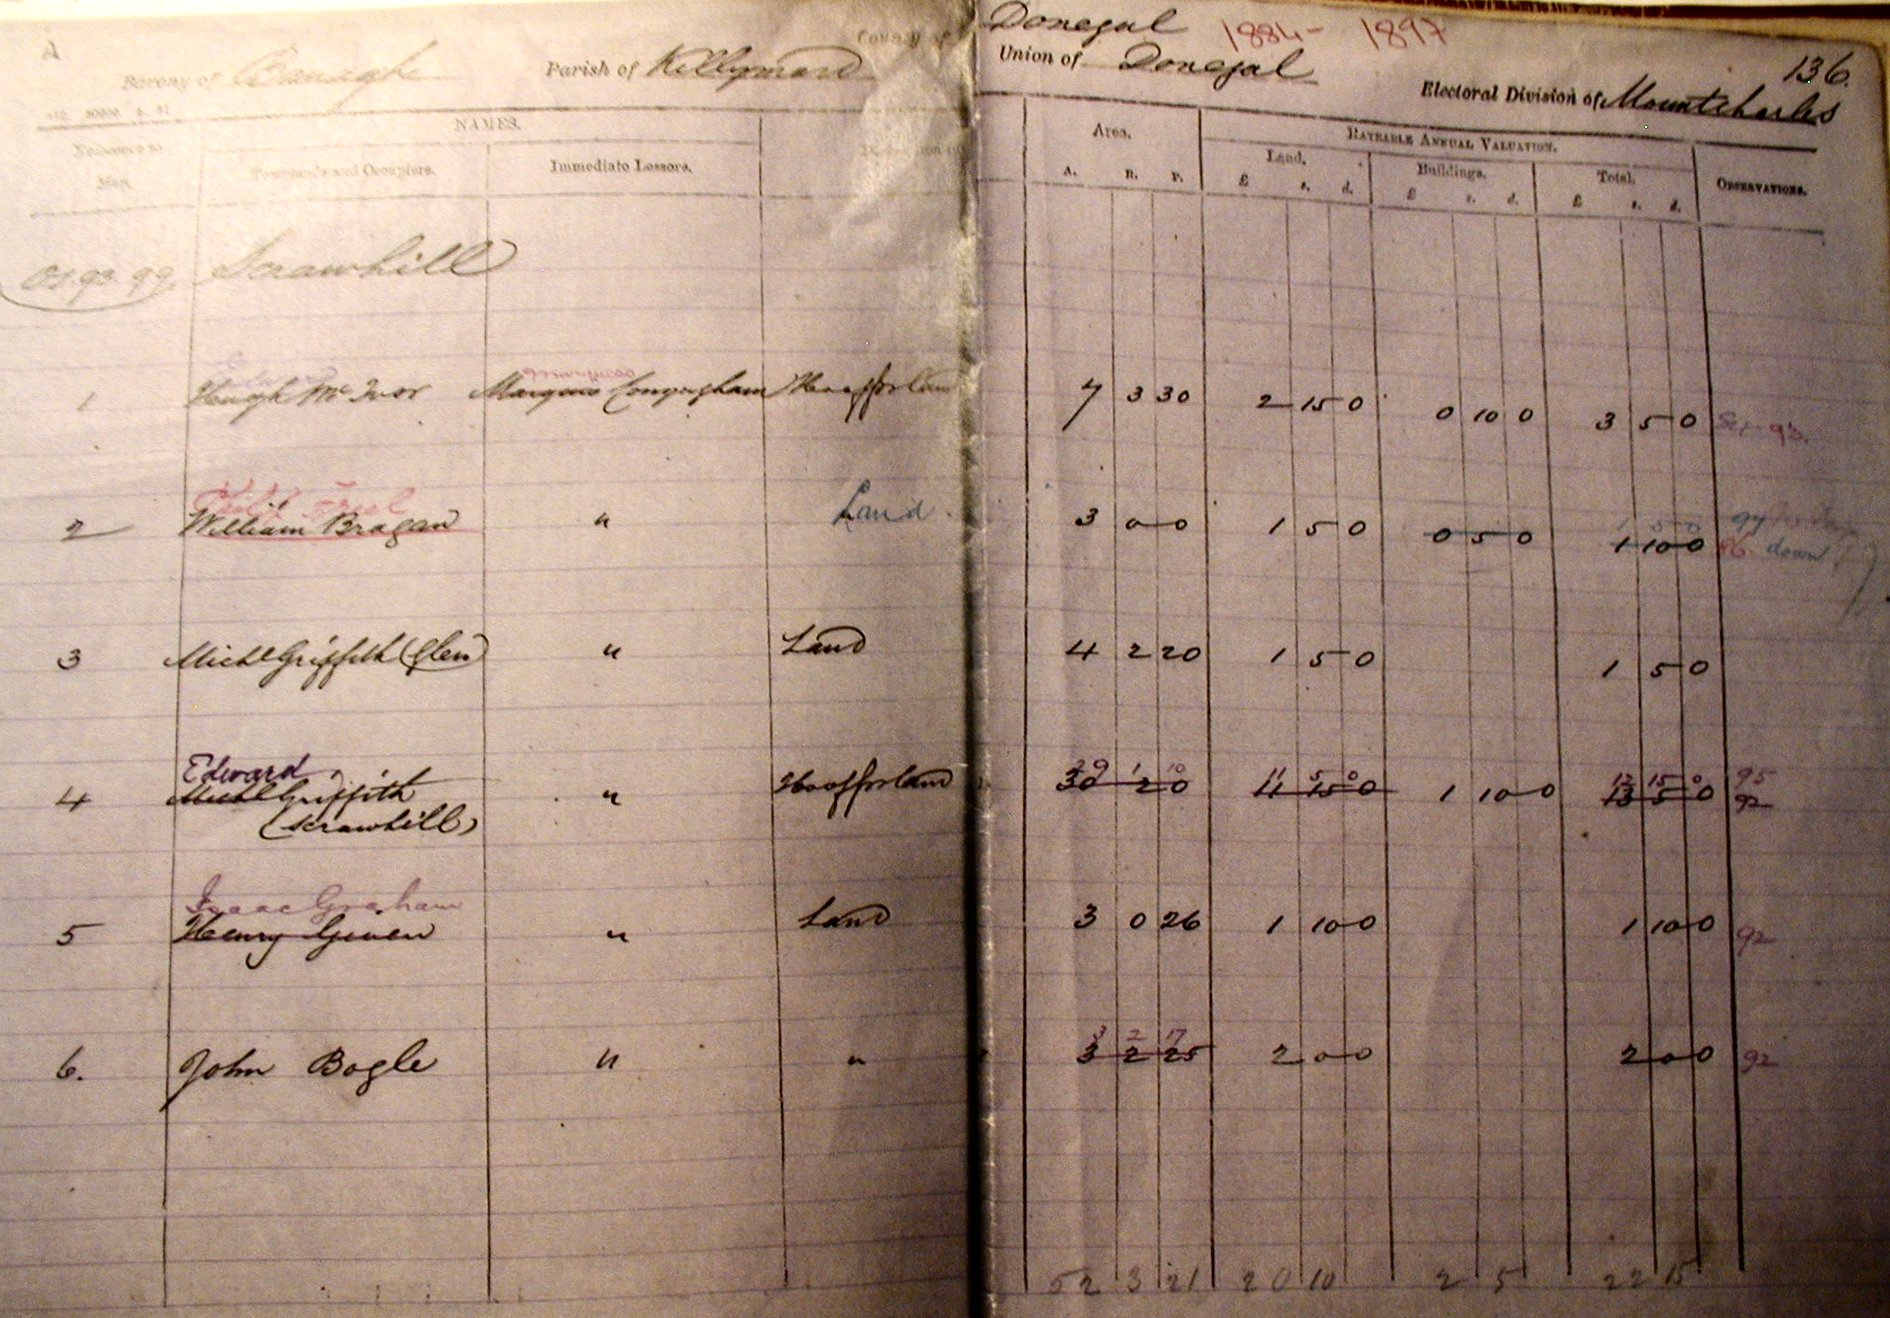 A
County of Donegal 1884- 1897
136.
Barony of Banagh Parish of Killymard Union of Donegal Electoral Division of Mountcharles
NAMES. Area. RATEABLE ANNUAL VALUATION. OBSERVATIONS.
Map. Townlands and Occupiers. Immediate Lessors. Land. Buildings. Total.
A. R. P. £ s. d. £ s. d. £ s. d.
93.99. Scrawhill
1 Hugh McIvor Marquis Conyngham Ho offs & land 7 3 30 2 15 0 0 10 0 3 5 0 93.
1 5 0 97
2 William Bragan " Land 3 0 0 1 5 0 0 5 0 1 10 0 down
3 Michl Griffith (Glen) " Land 4 2 20 1 5 0 1 5 0
Edward 29 1 10 11 5 0 12 15 0 95
4 Michl Griffith " Ho offs & land 30 2 0 11 15 0 1 10 0 13 5 0 92
(Scrawhill)
Isaac Graham
5 Henry Given " Land 3 0 26 1 10 0 1 10 0 92
3 2 17
6. John Bogle " " 3 2 25 2 0 0 2 0 0 92
52 3 21 20 10 2 5 22 15